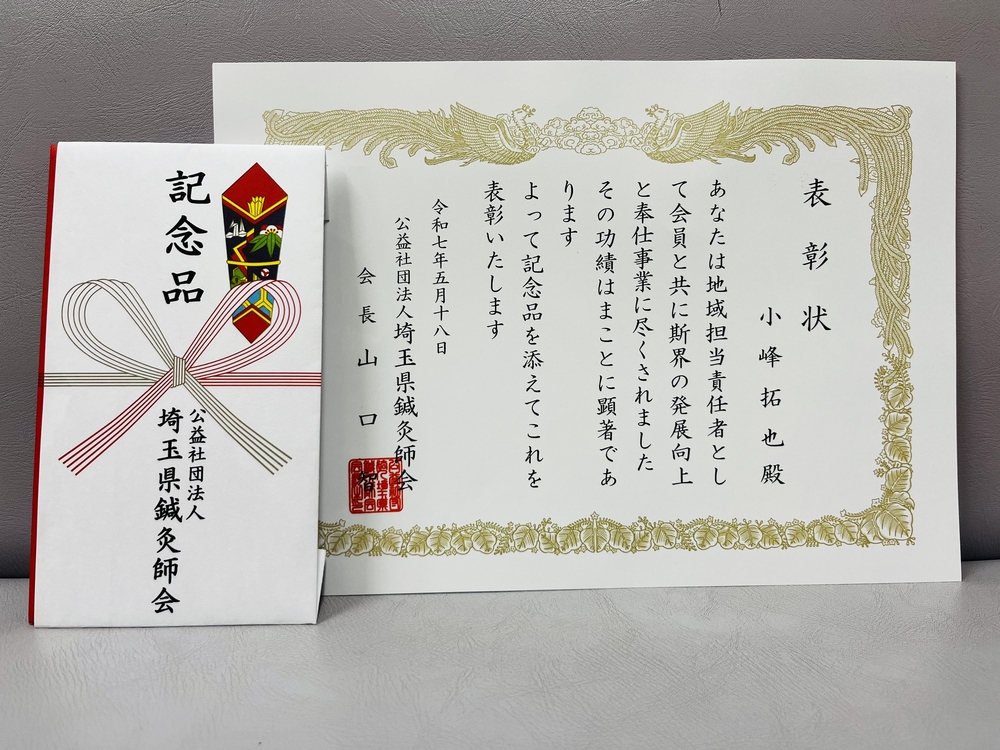 表彰状
小峰拓也殿
あなたは地域担当責任者とし
て会員と共に斯界の発展向上
と奉仕事業に尽くされました
その功績はまことに顕著であ
ります
よって記念品を添えてこれを
表彰いたします
令和七年五月十八日
公益社団法人埼玉県鍼灸師会
会長山口智
記念品
公益社団法人
埼玉県鍼灸師会